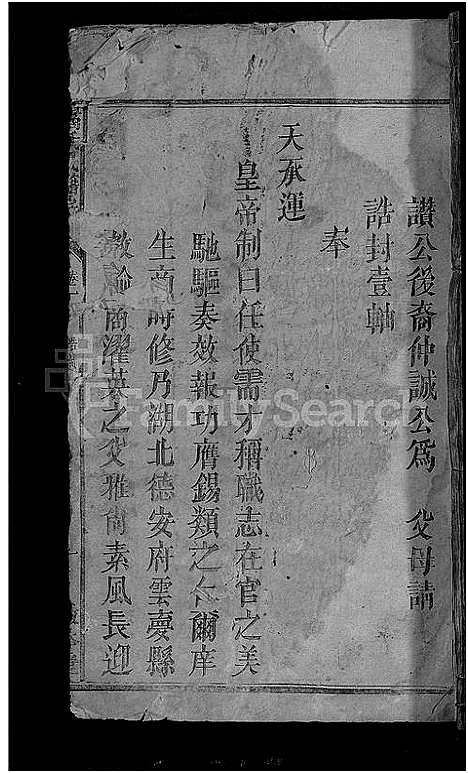 讃公後裔仲誠公爲 父母請
誥封壹軸
奉
天承運
皇帝制曰任使需才稱職志在官之美
馳驅奏效報功膺錫類之仁爾庠
生商時修乃湖北德安府雲夢縣
教諭商濯英之父雅尚素風長迎
FamilySearch